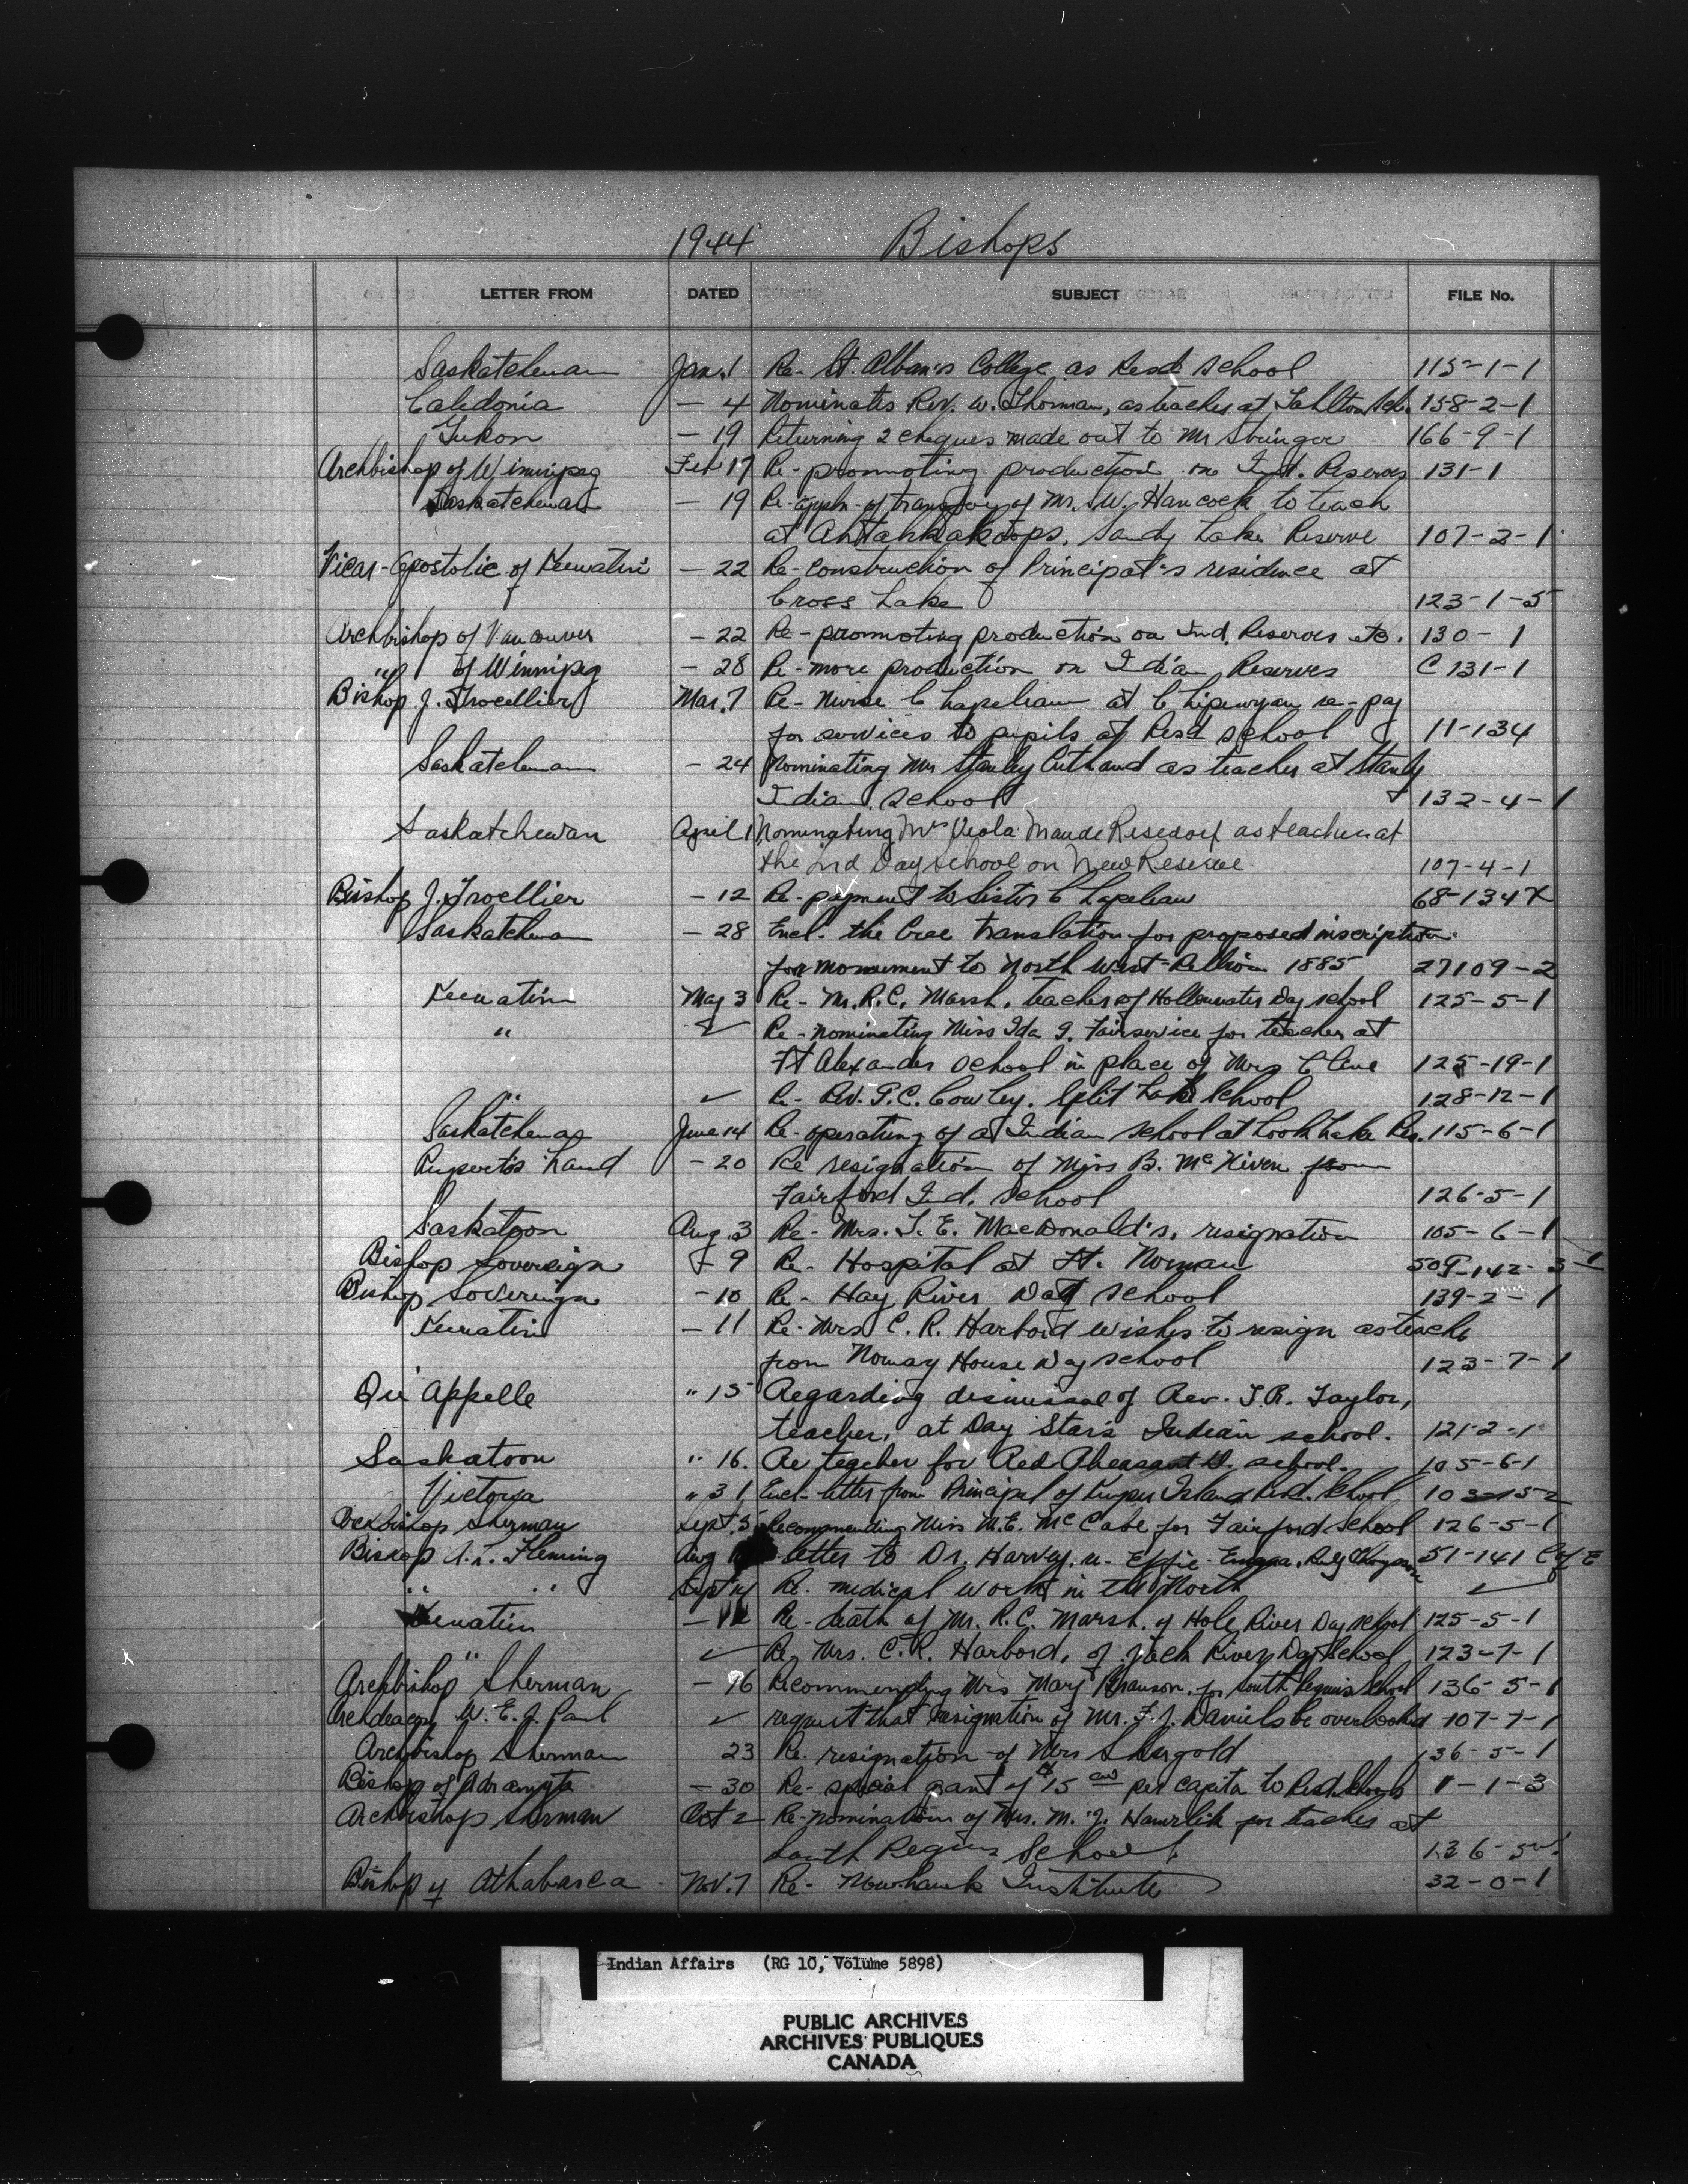 1944 Bishops
LETTER FROM DATED SUBJECT FILE No.
Saskatchewan Jan. 1 Re- St. Alban's College as Resd School 115-1-1
Caledonia - 4 Nominates Rev. W. Thorman, as teacher at Tahltan Sch. 158-2-1
Yukon - 19 Returning 2 cheques made out to Mr Stringer 166-9-1
Archbishop of Winnipeg Feb 17 Re- promoting production on Ind. Reserves 131-1
Saskatchewan - 19 Re- appln- of transfer of Mr. S.W. Hancock to teach
at Ahtahkakoops, Sandy Lake Reserve 107-2-1
Vicar-Apostolic of Keewatin - 22 Re- Construction of Principal's residence at
Cross Lake 123-1-5
Archbishop of Vancouver - 22 Re- promoting production on Ind. Reserves etc. 130-1
" of Winnipeg - 28 Re- more production on Indian Reserves C 131-1
Bishop J. Trocellier Mar. 7 Re- Nurse C Lapeleau at Chipewyan re- pay
for services to pupils at Resd School 11-134
Saskatchewan - 24 Nominating Mr Stanley Cuthand as teacher at Stanley
Indian School 132-4-1
Saskatchewan April 1 Nominating Mrs Viola Maude Risedorf as teacher at
the Ind Day School on New Reserve 107-4-1
Bishop J. Trocellier - 12 Re- payment to Sister C Lapeleau 68-134X
Saskatchewan - 28 Encl. the Cree translation for proposed inscription
for monument to North West Rebellion 1885 27109-2
Keewatin May 3 Re- Mr. R.C. Marsh, teacher of Hollowwater Day School 125-5-1
" ✓ Re- nominating Miss Ida G. Fairservice for teacher at
Ft Alexander School in place of Mrs Cline 125-19-1
" ✓ Re- Rev. P.C. Cowley, Split Lake School 128-12-1
Saskatchewan June 14 Re- operating of a Indian School at Loon Lake Res. 115-6-1
Rupert's Land - 20 Re resignation of Miss B. McNiven from
Fairford Ind. School 126-5-1
Saskatoon Aug. 3 Re- Mrs. T. E. MacDonald's, resignation 105-6-1
Bishop Sovereign - 9 Re- Hospital at Ft. Norman 509-142-3-1
Bishop Sovereign - 10 Re- Hay River Day School 139-2-1
Keewatin - 11 Re- Mrs C. R. Harbord wishes to resign as teacher
from Norway House Day School 123-7-1
Qu'Appelle " 15 Regarding dismissal of Rev. T.R. Taylor,
teacher, at Day Star's Indian school. 121-2-1
Saskatoon " 16. Re teacher for Red Pheasant D. school. 105-6-1
Victoria " 31 Encl- letter from Principal of Kuper Island Resd. School 103-15-2
Archbishop Sherman Sept. 5 Recommending Miss M.E. McCabe for Fairford School 126-5-1
Bishop A.L. Fleming Aug letter to Dr. Harvey, re. Effie 51-141 C of E
" " Sept 14 Re. medical work in the North ✓
Keewatin - 12 Re- death of Mr. R.C. Marsh, of Hole River Day School 125-5-1
" ✓ Re, Mrs. C.R. Harbord, of Jack River Day School 123-7-1
Archbishop Sherman - 16 Recommending Mrs Mary for South Peguis School 136-5-1
Archdeacon W. E. J. Paul ✓ request that resignation of Mr. F.J. Daniels be overlooked 107-7-1
Archbishop Sherman 23 Re. resignation of Mrs Shergold 136-5-1
Bishop of Adramytte - 30 Re- special grant of $15 00 per capita to Resd Schools 1-1-3
Archbishop Sherman Oct 2 Re- nomination of Mrs. M. J. Hawrlik for teacher at
South Peguis School 136-5-1
Bishop of Athabasca Nov. 7 Re- Mowhawk Institute 32-0-1
Indian Affairs (RG 10, Volume 5898)
PUBLIC ARCHIVES
ARCHIVES PUBLIQUES
CANADA